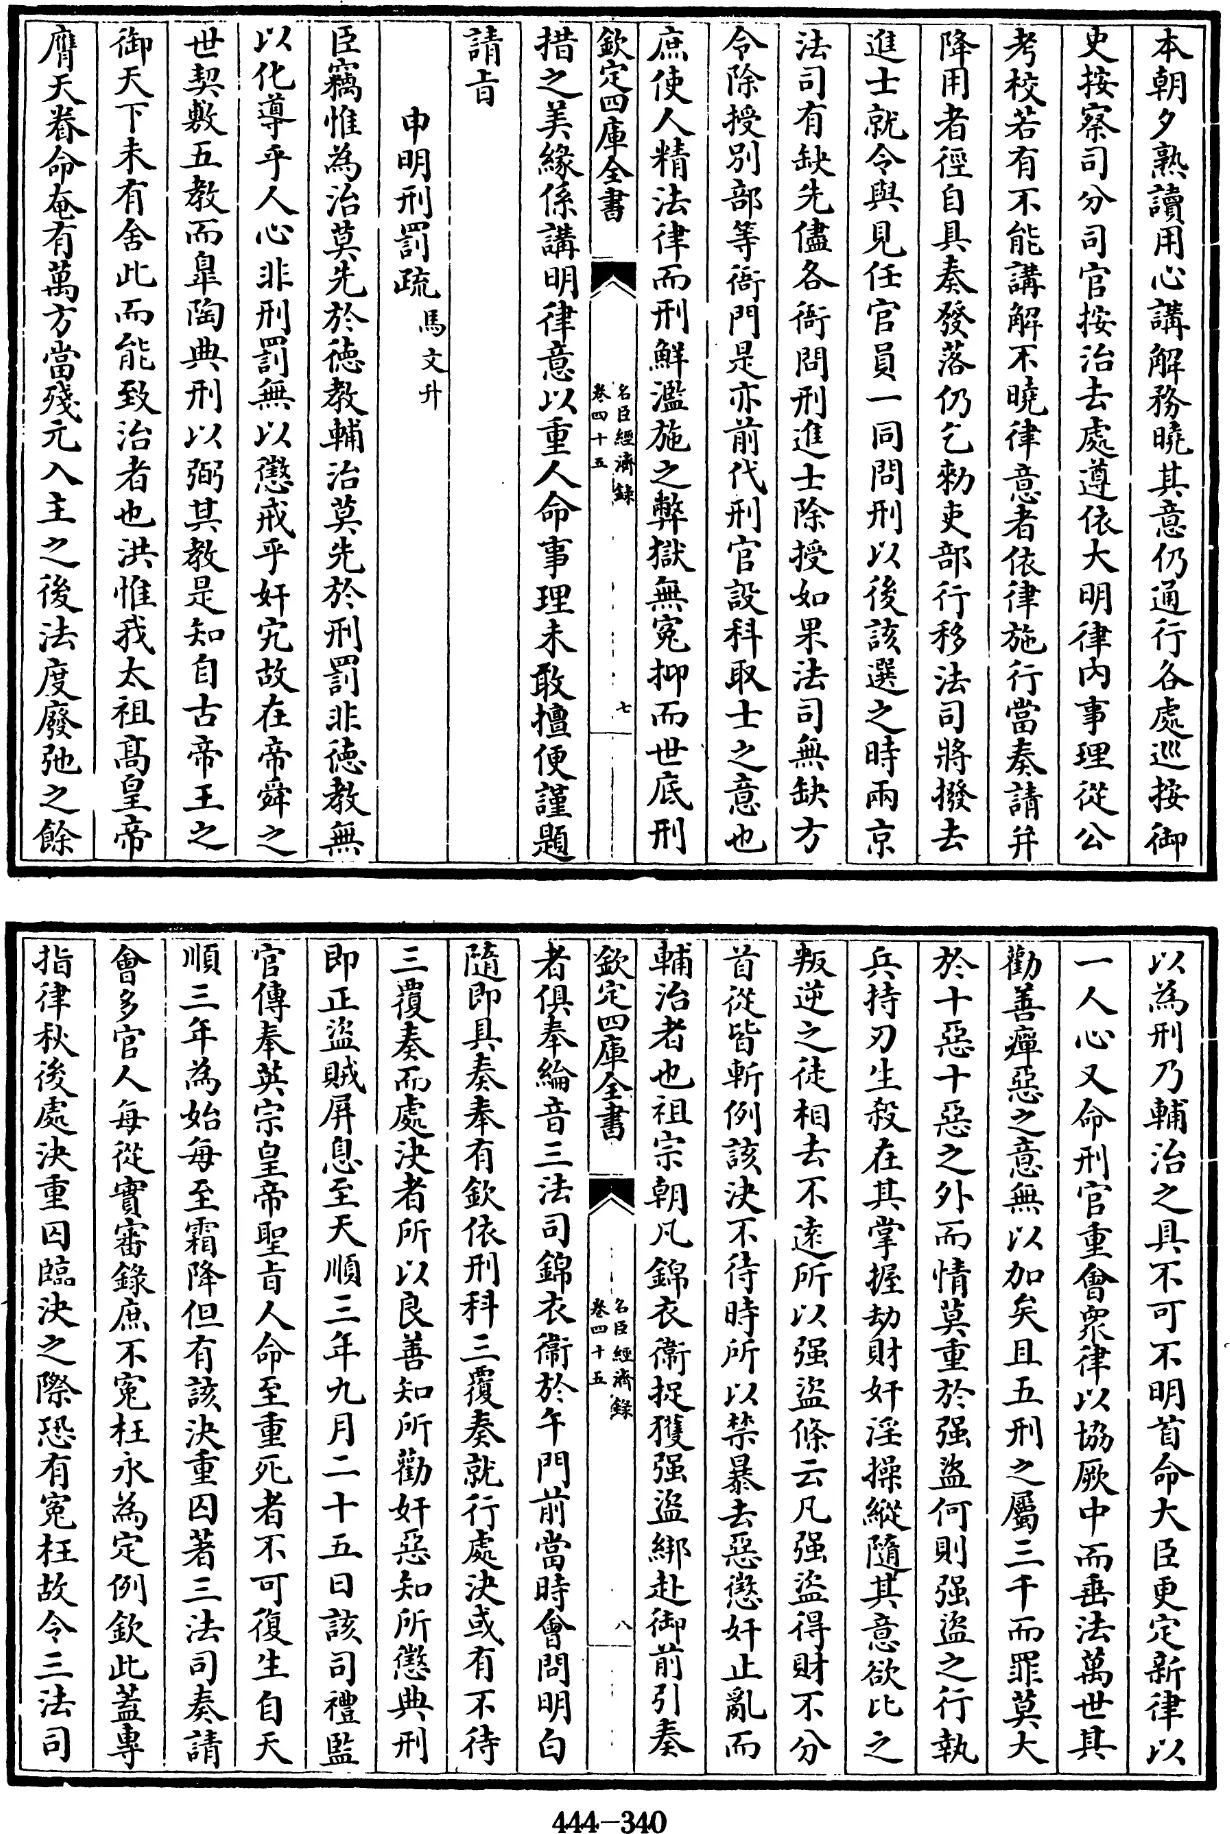 本朝夕熟讀用心講解務曉其意仍通行各處巡按御
史按察司分司官按治去處遵依大明律内事理從公
考校若有不能講解不曉律意者依律施行當奏請并
降用者徑自具奏發落仍乞勑吏部行移法司將撥去
進士就令與見任官員一同問刑以後該選之時兩京
法司有缺先儘各衙問刑進士除授如果法司無缺方
令除授别部等衙門是亦前代刑官設科取士之意也
庶使人精法律而刑鮮濫施之弊獄無寃抑而世底刑
欽定四庫全書
名臣經濟録
卷四十五
七
措之美緣係講明律意以重人命事理未敢擅便謹題
請旨
申明刑罰疏 馬文升
臣竊惟為治莫先於德教輔治莫先於刑罰非德教無
以化導乎人心非刑罰無以懲戒乎奸宄故在帝舜之
世契敷五教而臯陶典刑以弼其教是知自古帝王之
御天下未有舍此而能致治者也洪惟我太祖高皇帝
膺天眷命奄有萬方當殘元入主之後法度廢弛之餘
以為刑乃輔治之具不可不明首命大臣更定新律以
一人心又命刑官重會衆律以協厥中而垂法萬世其
勸善癉惡之意無以加矣且五刑之屬三千而罪莫大
於十惡十惡之外而情莫重於强盜何則强盜之行執
兵持刃生殺在其掌握劫財奸淫操縱隨其意欲比之
叛逆之徒相去不遠所以强盜條云凡强盜得財不分
首從皆斬例該決不待時所以禁暴去惡懲奸止亂而
輔治者也祖宗朝凡錦衣衞捉獲强盜綁赴御前引奏
欽定四庫全書
名臣經濟録
卷四十五
八
者俱奉綸音三法司錦衣衞於午門前當時會問明白
隨即具奏奉有欽依刑科三覆奏就行處決或有不待
三覆奏而處決者所以良善知所勸奸惡知所懲典刑
即正盜賊屏息至天順三年九月二十五日該司禮監
官傳奉英宗皇帝聖旨人命至重死者不可復生自天
順三年為始每至霜降但有該決重囚著三法司奏請
會多官人每從實審錄庶不寃枉永為定例欽此蓋專
指律秋後處決重囚臨決之際恐有寃枉故令三法司
444-340